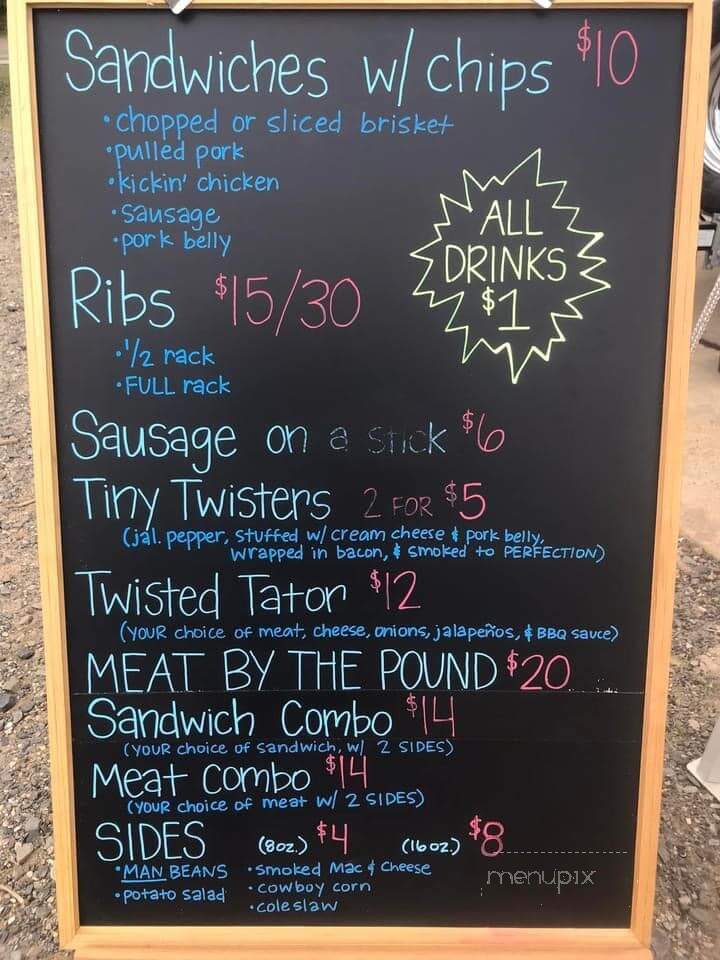 Sandwiches w/ chips $10
• chopped or sliced brisket
• pulled pork
• kickin' chicken
• Sausage
• pork belly
ALL
DRINKS
$1
Ribs $15/30
• 1/2 rack
• FULL rack
Sausage on a stick $6
Tiny Twisters 2 FOR $5
(jal. pepper, stuffed w/ cream cheese & pork belly,
wrapped in bacon, & smoked to PERFECTION)
Twisted Tator $12
(YOUR choice of meat, cheese, onions, jalapeños, & BBQ sauce)
MEAT BY THE POUND $20
Sandwich Combo $14
(YOUR choice of sandwich, w/ 2 SIDES)
Meat Combo $14
(YOUR choice of meat w/ 2 SIDES)
SIDES (8oz.) $4 (16oz.) $8
• MAN BEANS • Smoked Mac & Cheese
• potato salad • cowboy corn
• coleslaw
menupix